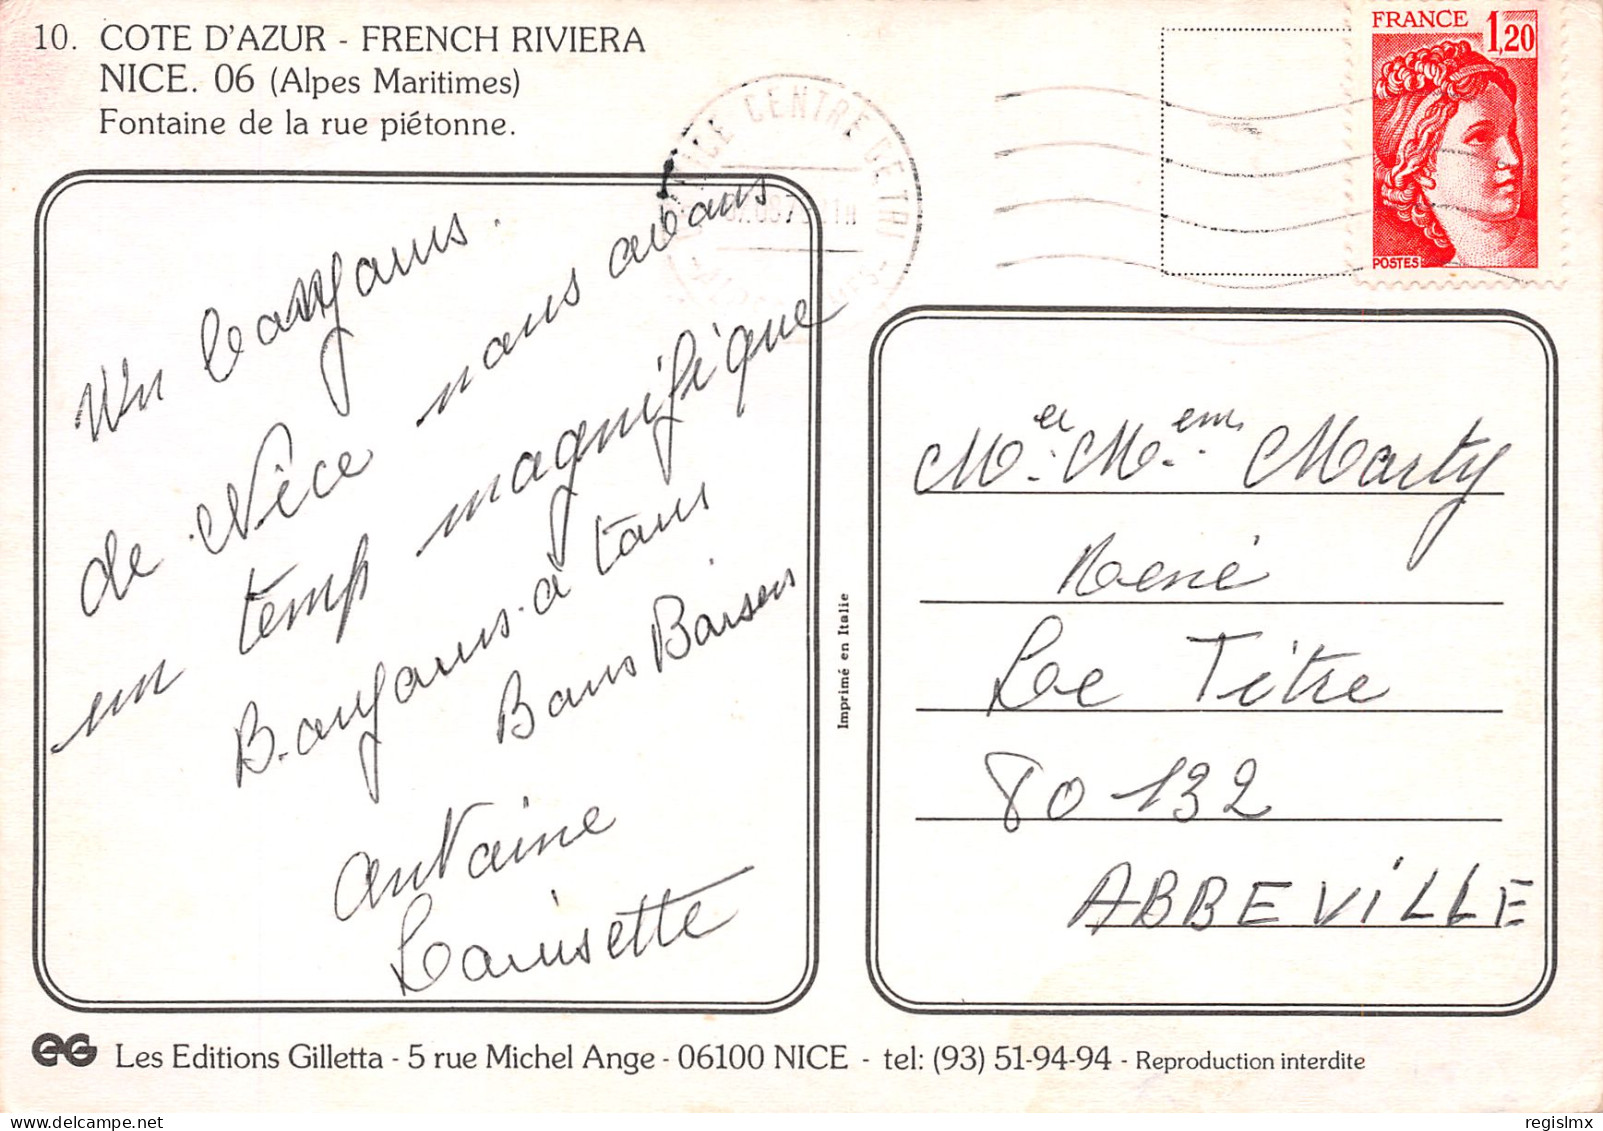 10. COTE D'AZUR - FRENCH RIVIERA
NICE. 06 (Alpes Maritimes)
Fontaine de la rue piétonne.
FRANCE 1,20
POSTES
CENTRE DE TRI
Un
de Nice nous avons
un temp magnifique
Bonjours à tous
Bons Baisers
Antoine
Louisette
Imprimé en Italie
Mr et Mme Marty
René
Le Titre
80 132
ABBEVILLE
Les Editions Gilletta - 5 rue Michel Ange - 06100 NICE - tel: (93) 51-94-94 - Reproduction interdite
regislmx